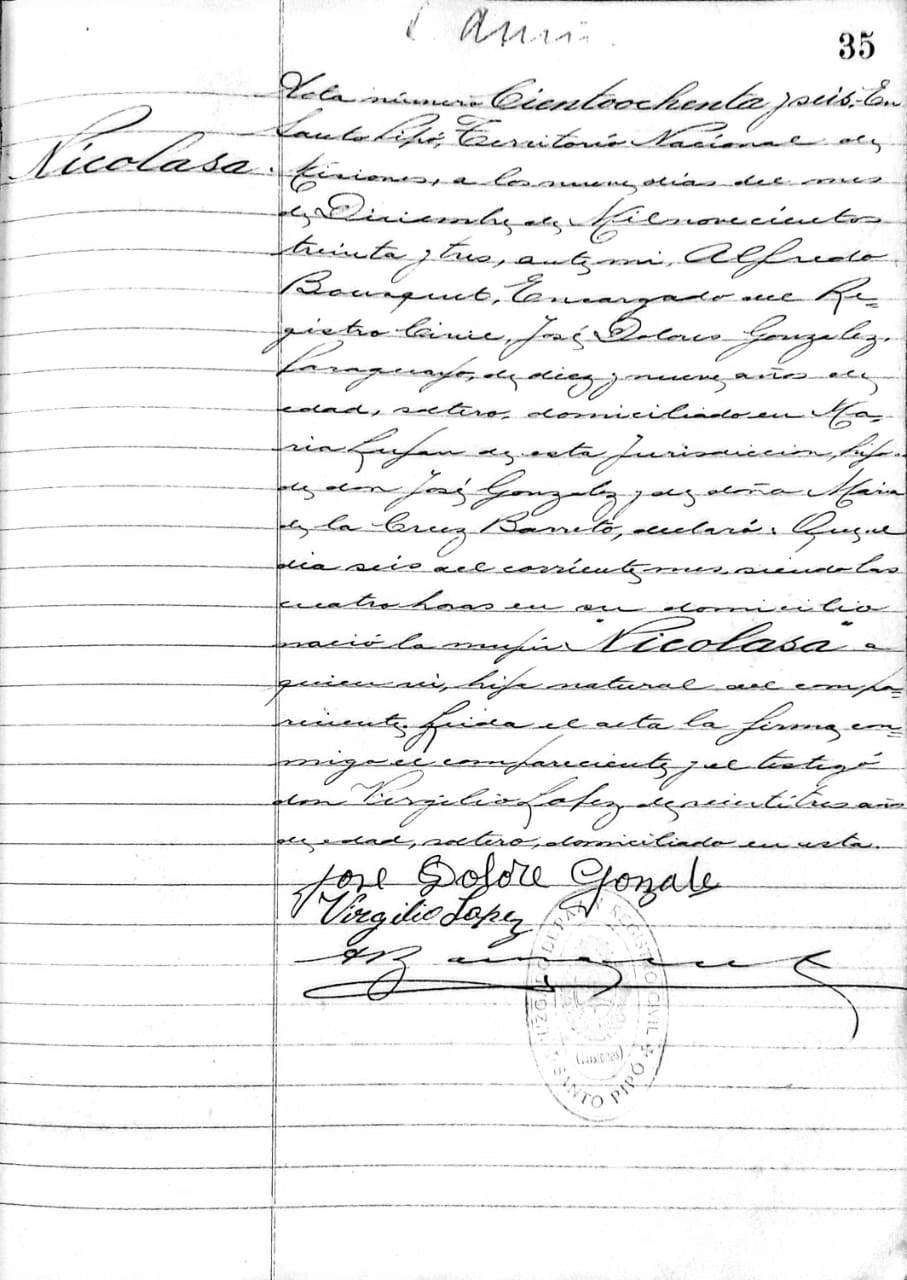 35
Nicolasa.
Acta número Cientoochenta y seis. En
Santo Pipó, Territorio Nacional de
Misiones, a los nueve días del mes
de Diciembre de Mil novecientos
treinta y tres, ante mi, Alfredo
Bousquet, Encargado del Re=
gistro Civil, José Dolores Gonzalez,
Paraguayo, de diez y nueve años de
edad, soltero, domiciliado en Ma-
ria Lujan de esta Jurisdiccion, hijo
de don José Gonzalez y de doña Maria
de la Cruz Barreto, declaró: Que el
dia seis del corriente mes, siendo las
cuatro horas en su domicilio
nació la mujer "Nicolasa" a
quien vi, hija natural del compa=
reciente, Leida el acta la firma con=
migo el compareciente y el testigó
don Virgilio Lopez de veintitres años
de edad, soltero, domiciliado en esta.
Jose Dolore Gonzale
Virgilio Lopez
JUZGADO DE PAZ Y REGISTRO CIVIL
(MISIONES)
SANTO PIPÓ